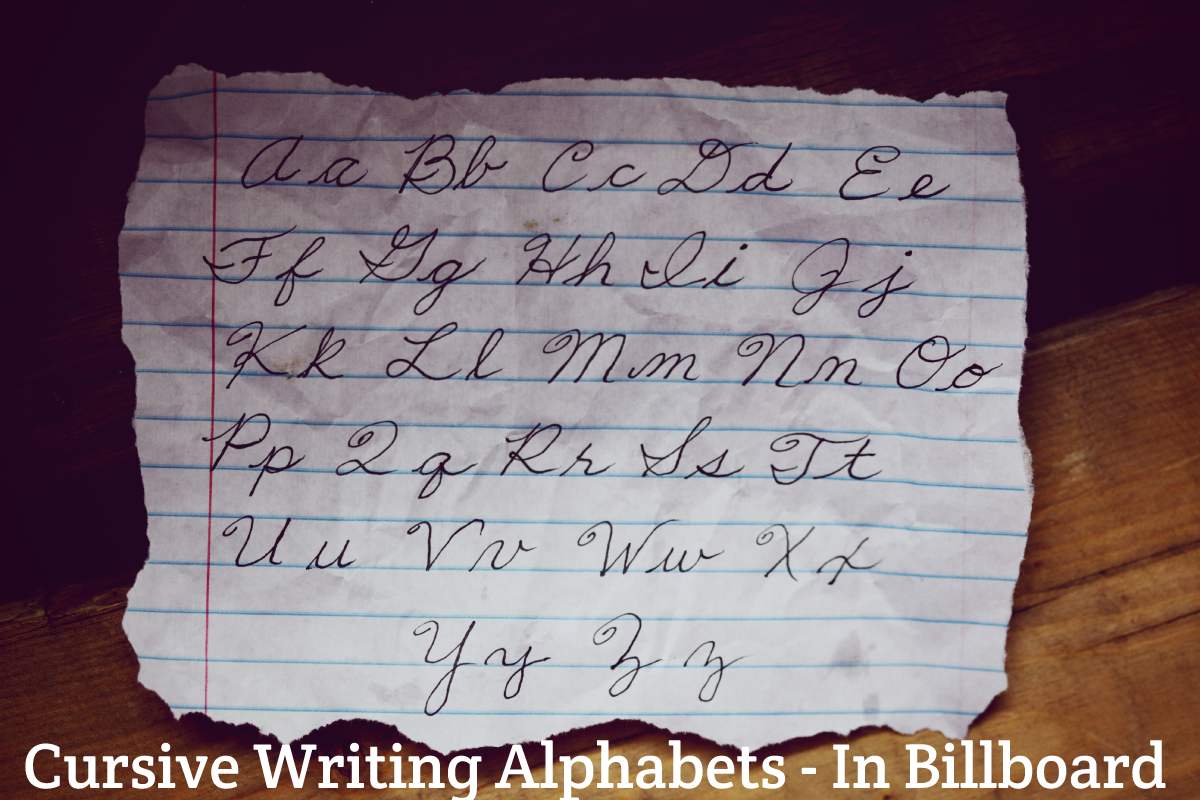 Aa Bb Cc Dd Ee
Ff Gg Hh Ii Jj
Kk Ll Mm Nn Oo
Pp Qq Rr Ss Tt
Uu Vv Ww Xx
Yy Zz
Cursive Writing Alphabets - In Billboard